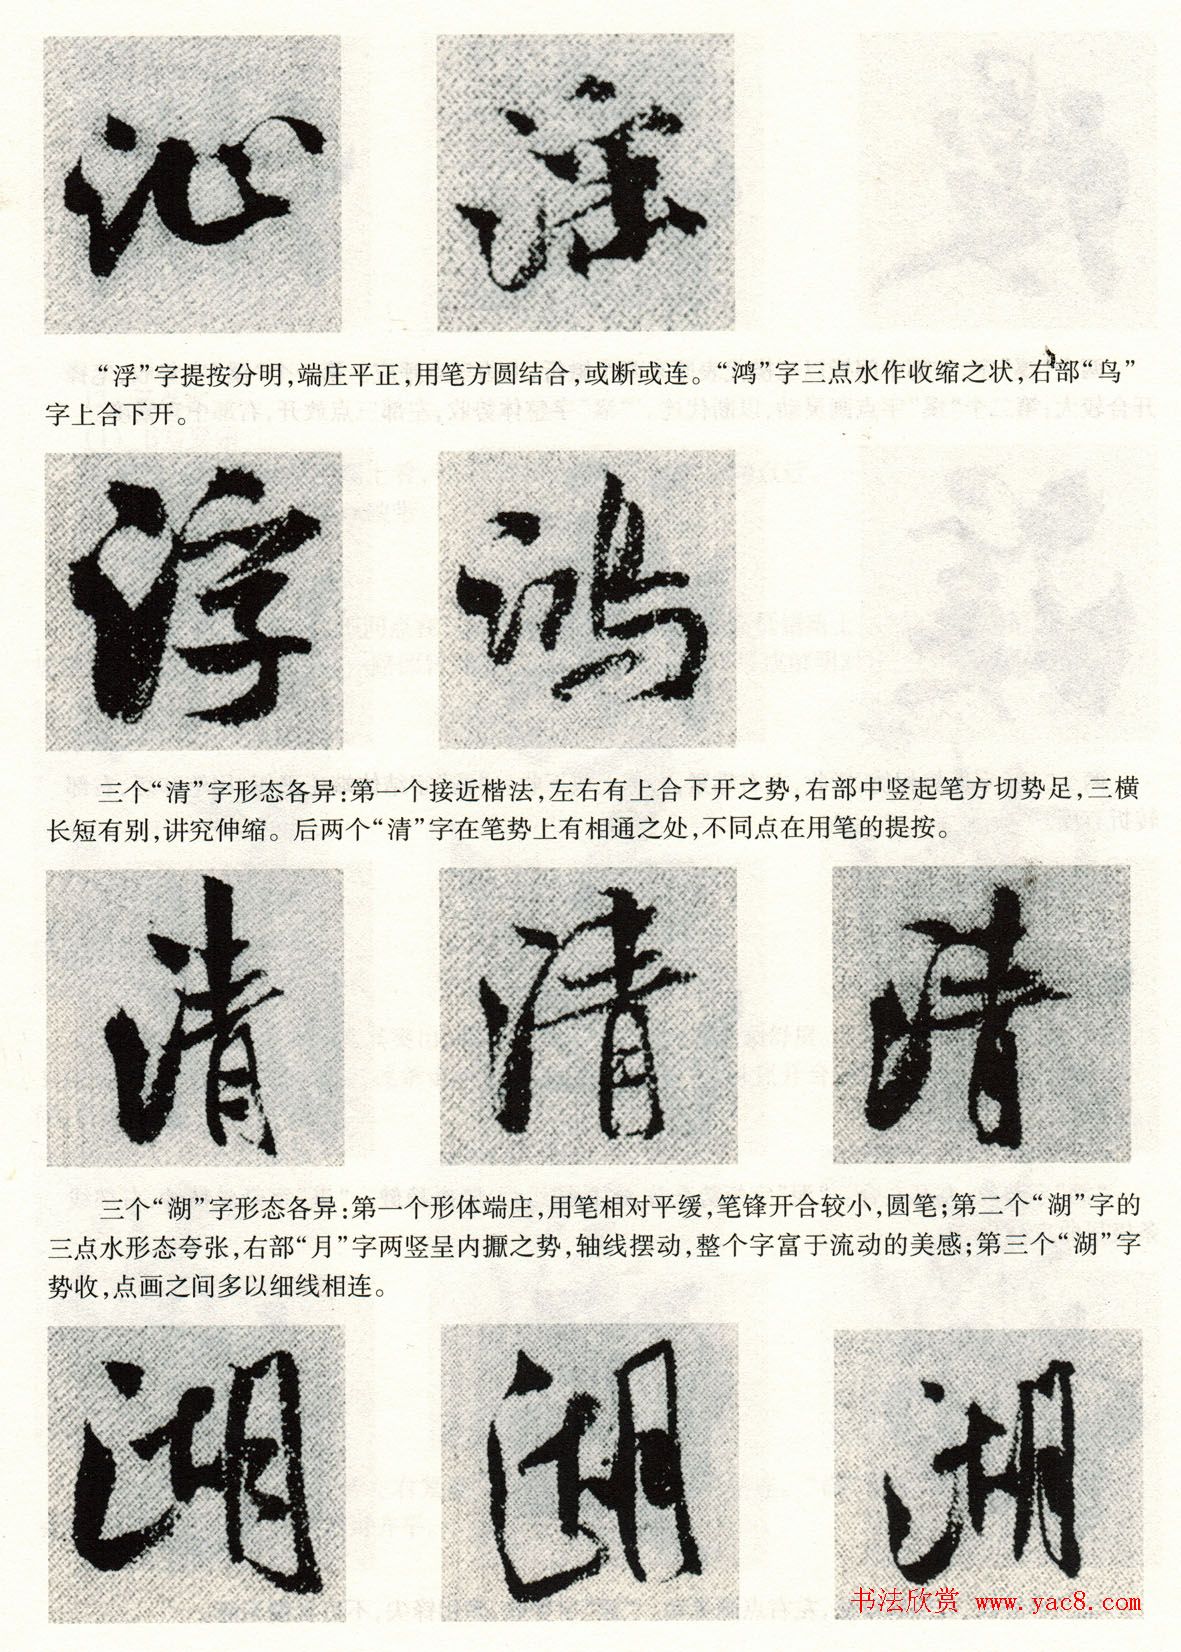 沁 深
“浮”字提按分明,端庄平正,用笔方圆结合,或断或连。“鸿”字三点水作收缩之状,右部“鸟”
字上合下开。
浮 鸿
三个“清”字形态各异:第一个接近楷法,左右有上合下开之势,右部中竖起笔方切势足,三横
长短有别,讲究伸缩。后两个“清”字在笔势上有相通之处,不同点在用笔的提按。
清 清 清
三个“湖”字形态各异:第一个形体端庄,用笔相对平缓,笔锋开合较小,圆笔;第二个“湖”字的
三点水形态夸张,右部“月”字两竖呈内擫之势,轴线摆动,整个字富于流动的美感;第三个“湖”字
势收,点画之间多以细线相连。
湖 湖 湖
书法欣赏 www.yac8.com